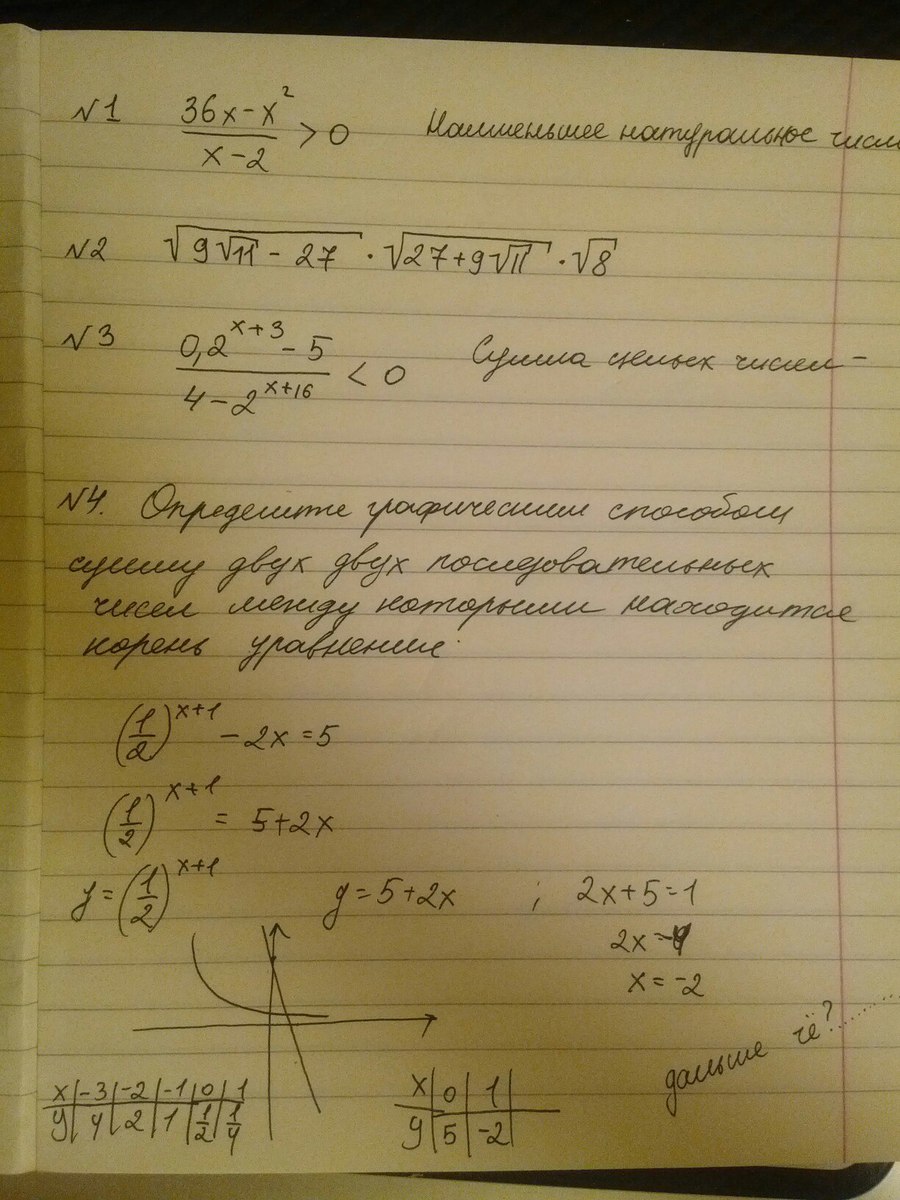 №1 (36x-x²)/(x-2) > 0 Наименьшее натуральное числ
№2 √(9√11 - 27) · √(27+9√11) · √8
№3 (0,2^(x+3) - 5)/(4-2^(x+16)) < 0 Сумма целых чисел -
№4. Определите графическим способом
сумму двух двух последовательных
чисел между которыми находится
корень уравнения
(1/2)^(x+1) - 2x = 5
(1/2)^(x+1) = 5+2x
y = (1/2)^(x+1) y = 5+2x ; 2x+5=1
2x=-4
x = -2
дальше чё?
x | -3 | -2 | -1 | 0 | 1
y | 4 | 2 | 1 | 1/2 | 1/4
x | 0 | 1
y | 5 | -2